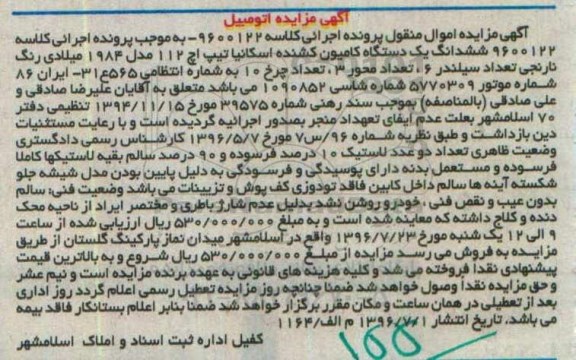 آگهی مزایده اتومبیل
آگهی مزایده اموال منقول پرونده اجرائی کلاسه ۹۶۰۰۱۲۲- به موجب پرونده اجرائی کلاسه
۹۶۰۰۱۲۲ ششدانگ یک دستگاه کامیون کشنده اسکانیا تیپ اچ ۱۱۲ مدل ۱۹۸۴ میلادی رنگ
نارنجی تعداد سیلندر ۶ ، تعداد محور ۳ ، تعداد چرخ ۱۰ به شماره انتظامی ۵۶۵ع۳۱- ایران ۸۶
شماره موتور ۵۷۷۰۳۰۹ شماره شاسی ۱۰۹۰۸۵۲ می باشد متعلق به آقایان علیرضا صادقی و
علی صادقی (بالمناصفه) بموجب سند رهنی شماره ۳۹۵۷۵ مورخ ۱۳۹۴/۱۱/۱۵ تنظیمی دفتر
۷۰ اسلامشهر بعلت عدم ایفای تعهداد منجر بصدور اجرائیه گردیده است و با رعایت مستثنیات
دین بازداشت و طبق نظریه شماره ۹۶/س۷ مورخ ۱۳۹۶/۵/۷ کارشناس رسمی دادگستری
وضعیت ظاهری تعداد دو عدد لاستیک ۱۰ درصد فرسوده و ۹۰ درصد سالم بقیه لاستیکها کاملا
فرسوده و مستعمل بدنه دارای پوسیدگی و فرسودگی به دلیل پایین بودن مدل شیشه جلو
شکسته آینه ها سالم داخل کابین فاقد تودوزی کف پوش و تزیینات می باشد وضعیت فنی: سالم
بدون عیب و نقص فنی ، خودرو روشن نشد بدلیل عدم شارژ باطری و مختصر ایراد از ناحیه محک
دنده و کلاج داشته که معاینه شده است و به مبلغ ۵۳۰/۰۰۰/۰۰۰ ریال ارزیابی شده از ساعت
۹ الی ۱۲ یک شنبه مورخ ۱۳۹۶/۷/۲۳ واقع در اسلامشهر میدان نماز پارکینگ گلستان از طریق
مزایده به فروش می رسد مزایده از مبلغ ۵۳۰/۰۰۰/۰۰۰ ریال شروع و به بالاترین قیمت
پیشنهادی نقدا فروخته می شد و کلیه هزینه های قانونی به عهده برنده مزایده است و نیم عشر
و حق مزایده نقدا وصول خواهد شد ضمنا چنانچه روز مزایده تعطیل رسمی اعلام گردد روز اداری
بعد از تعطیلی در همان ساعت و مکان مقرر برگزار خواهد شد ضمنا بنابر اعلام بستانکار فاقد بیمه
می باشد. تاریخ انتشار ۱۳۹۶/۷/۱ م الف/۱۱۶۴
کفیل اداره ثبت اسناد و املاک اسلامشهر